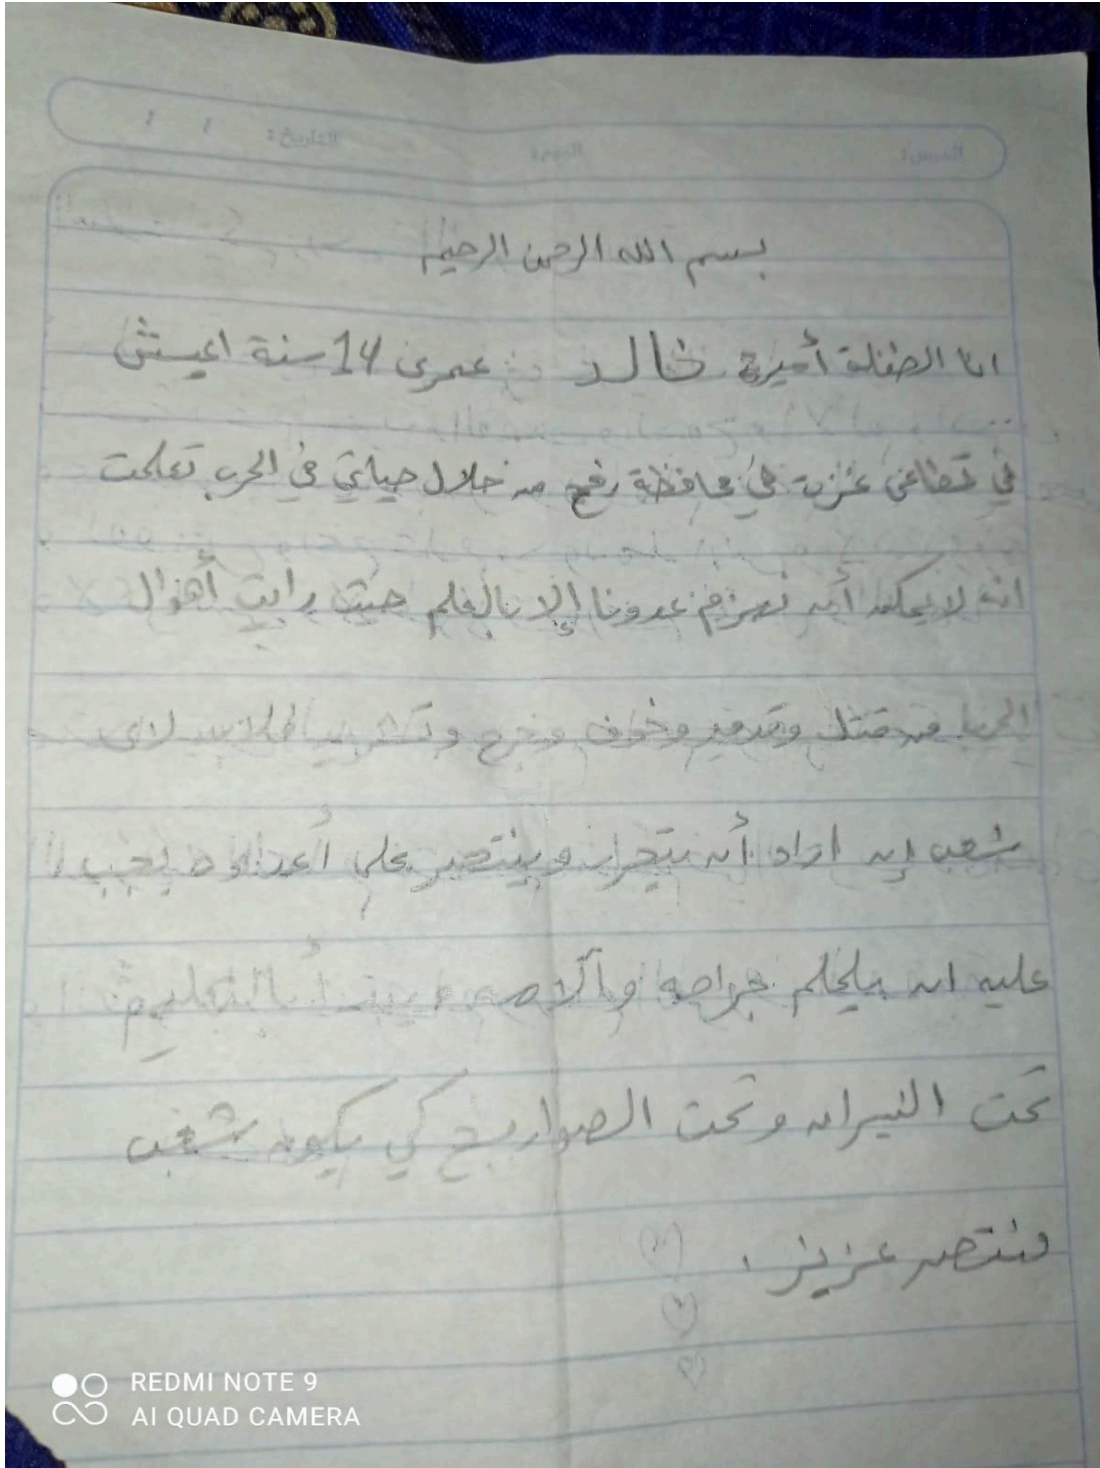 بسم الله الرحمن الرحيم
انا الطفلة أميرة خالد عمري 14 سنة اعيش
في قطاعي غزة في محافظة رفح من خلال حياتي في الحرب تعلمت
انه لا يمكن أن نهزم عدونا إلا بالعلم حيث رايت أهوال
الحرب من قتل وتدمير وخوف وجوع وتشريد لاى
شعب إن اراد أن يتحرر وينتصر على أعداؤه يجب
عليه ان يلملم جراحه وآلامه ويبدأ بالتعليم
تحت النيران وتحت الصواريخ كي يكون شعب
منتصر عزيز .
REDMI NOTE 9
AI QUAD CAMERA